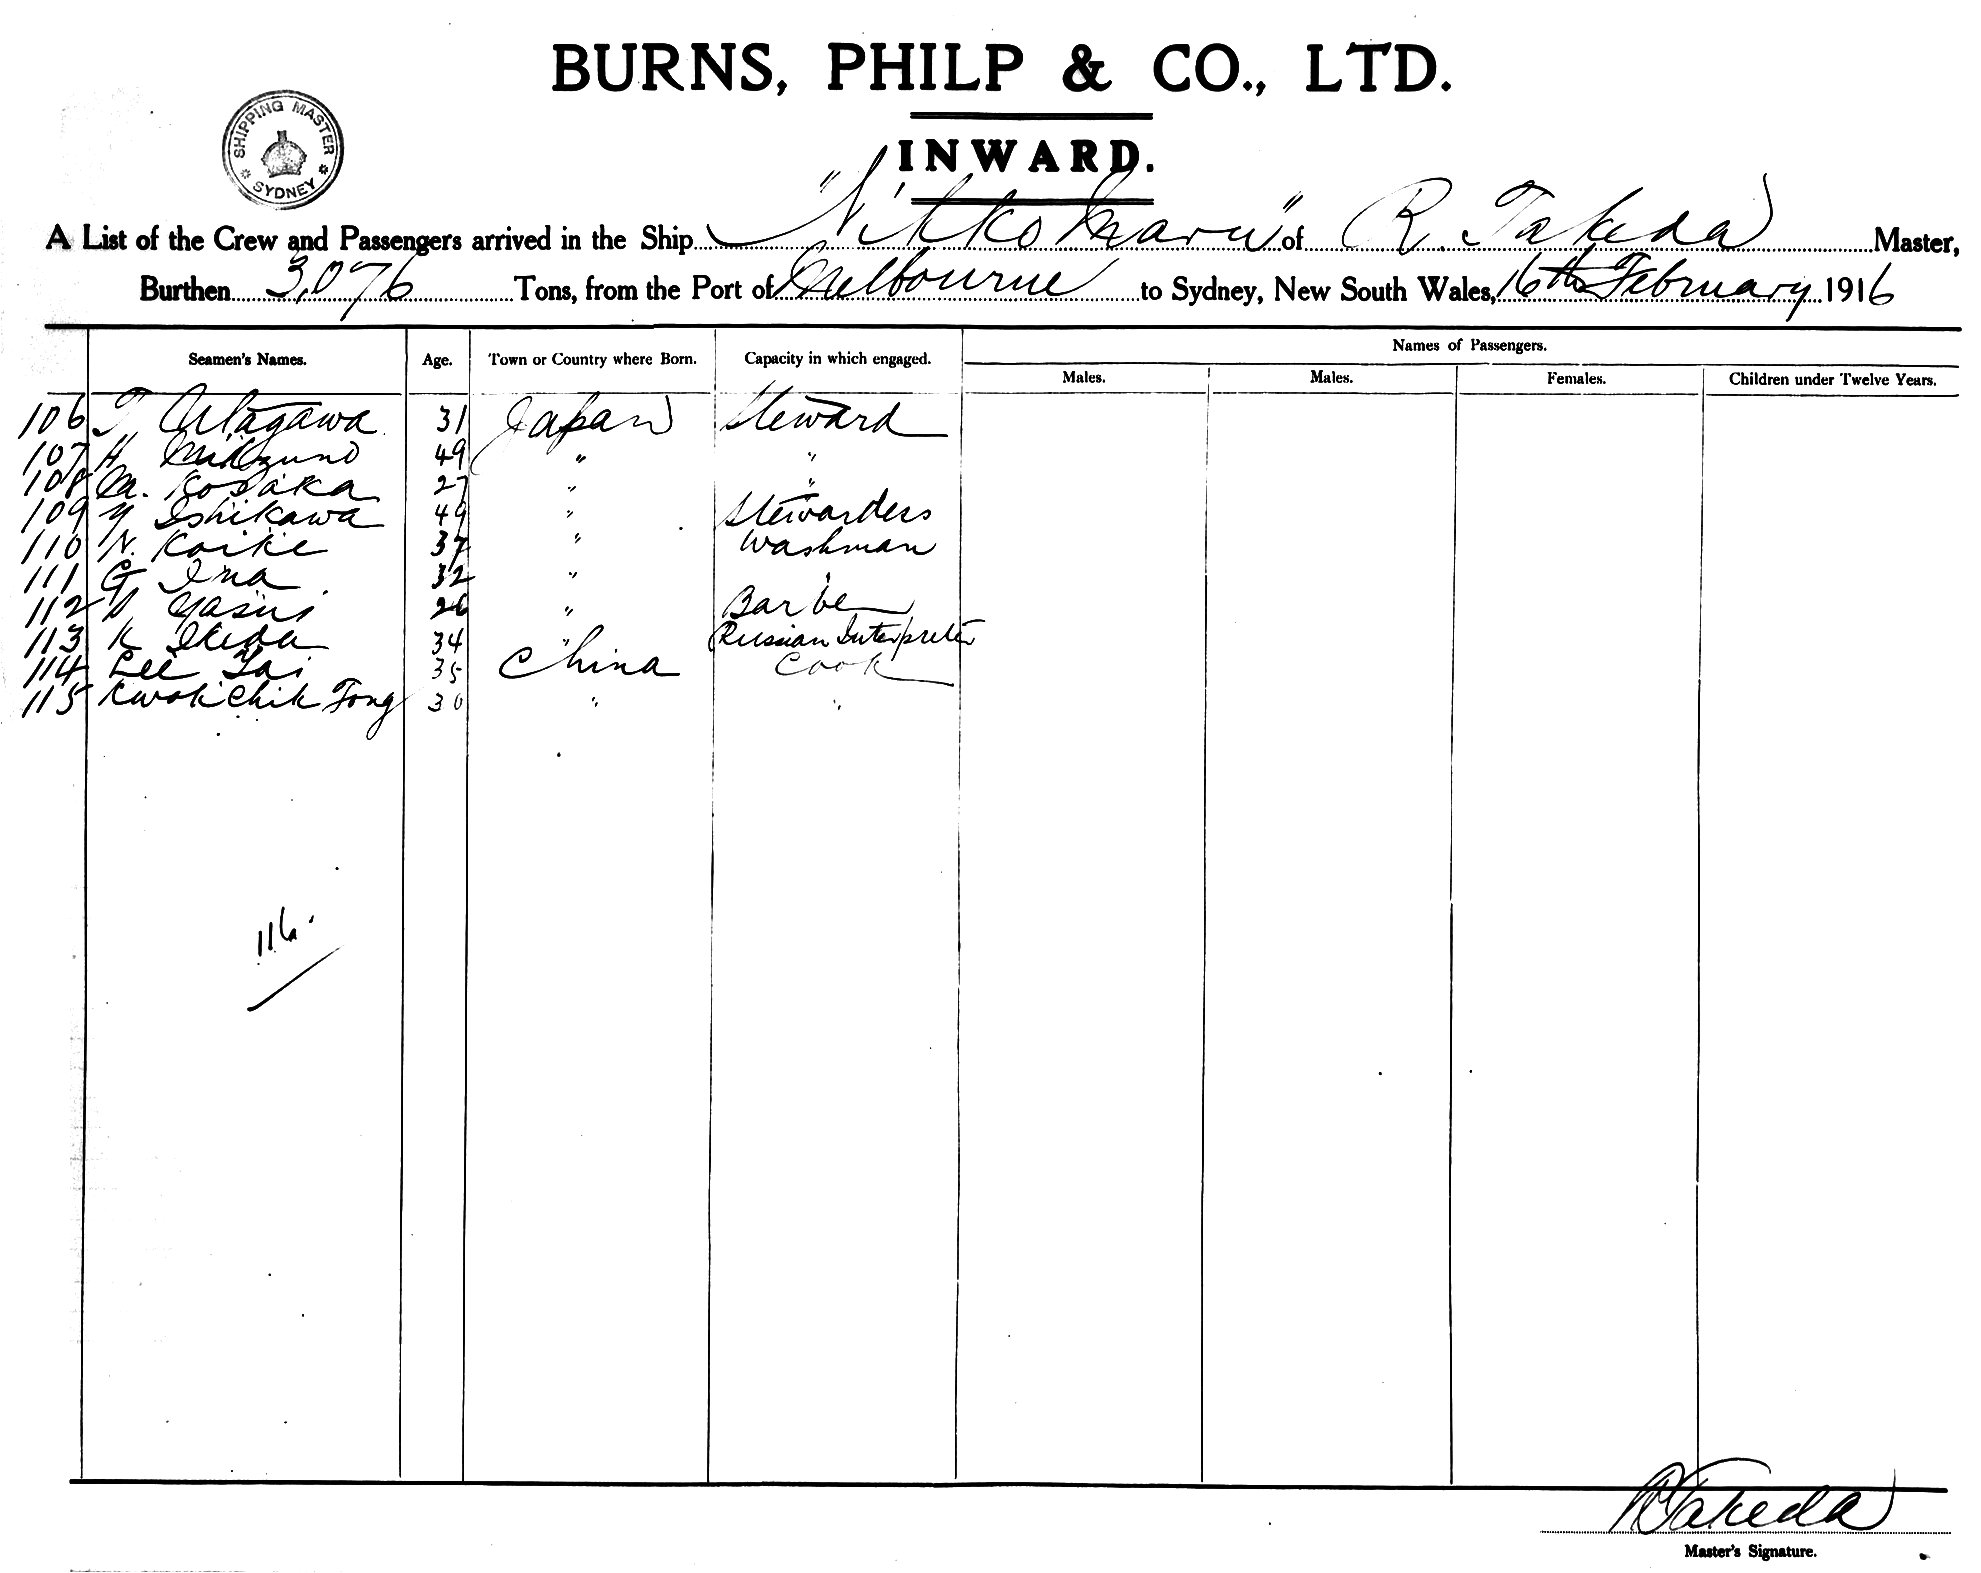 BURNS, PHILP & CO., LTD.
INWARD.
SHIPPING MASTER SYDNEY
A List of the Crew and Passengers arrived in the Ship "Nikko Maru" of R. Takeda Master,
Burthen 3,076 Tons, from the Port of Melbourne to Sydney, New South Wales, 16th February 1916
Seamen's Names. Age. Town or Country where Born. Capacity in which engaged. Names of Passengers.
Males. Males. Females. Children under Twelve Years.
106 T Utagawa 31 Japan Steward
107 H Mikzuno 49 " "
108 M. Kosaka 27 " "
109 Y Ishikawa 49 " Stewardess
110 N. Koike 37 " Washman
111 G Ina 32 " "
112 Yasui 26 " Barber
113 K Ikeda 34 " Russian Interpreter
114 Lee Tai 35 China Cook
115 Kwok Chik Fong 30 " "
116.
R Takeda
Master's Signature.